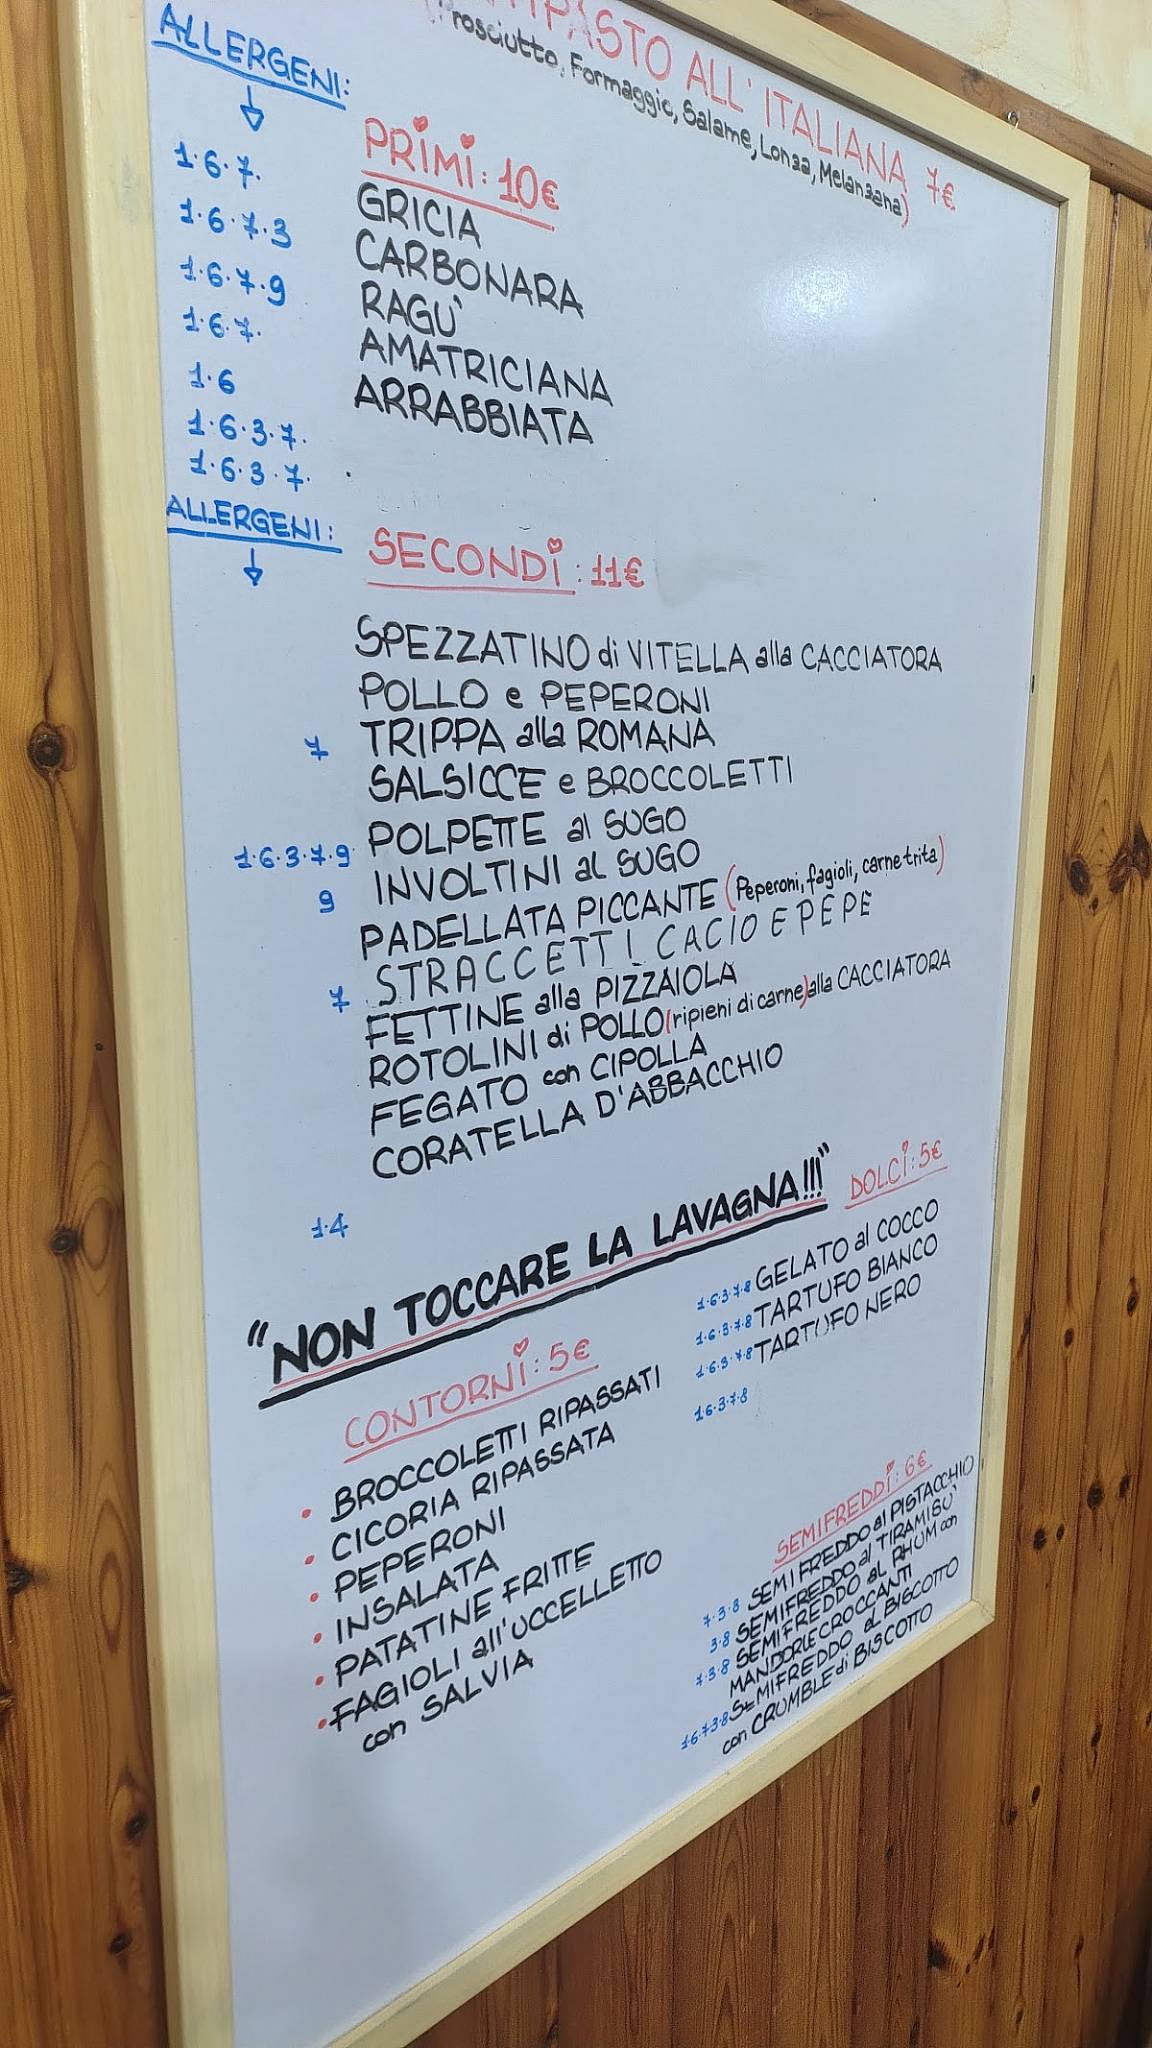 ANTIPASTO ALL' ITALIANA 7€
(Prosciutto, Formaggio, Salame, Lonza, Melanzana)
ALLERGENI:
PRIMI: 10€
1.6.7. GRICIA
1.6.7.3 CARBONARA
1.6.7.9 RAGU'
1.6.7. AMATRICIANA
1.6 ARRABBIATA
1.6.3.7.
1.6.3.7.
ALLERGENI:
SECONDI: 11€
SPEZZATINO di VITELLA alla CACCIATORA
POLLO e PEPERONI
7 TRIPPA alla ROMANA
SALSICCE e BROCCOLETTI
1.6.3.7.9 POLPETTE al SUGO
9 INVOLTINI al SUGO
PADELLATA PICCANTE (Peperoni, fagioli, carne trita)
7 STRACCETTI CACIO E PEPE
FETTINE alla PIZZAIOLA
ROTOLINI di POLLO (ripieni di carne) alla CACCIATORA
FEGATO con CIPOLLA
CORATELLA D'ABBACCHIO
1.4
"NON TOCCARE LA LAVAGNA!!!"
DOLCI: 5€
1.6.3.7.8 GELATO al COCCO
1.6.3.7.8 TARTUFO BIANCO
1.6.3.7.8 TARTUFO NERO
1.6.3.7.8
CONTORNI: 5€
• BROCCOLETTI RIPASSATI
• CICORIA RIPASSATA
• PEPERONI
• INSALATA
• PATATINE FRITTE
• FAGIOLI all'UCCELLETTO
con SALVIA
SEMIFREDDI: 6€
7.3.8 SEMIFREDDO al PISTACCHIO
3.8 SEMIFREDDO al TIRAMISU'
7.3.8 SEMIFREDDO al RHUM con
MANDORLE CROCCANTI
1.6.7.3.8 SEMIFREDDO al BISCOTTO
con CRUMBLE di BISCOTTO